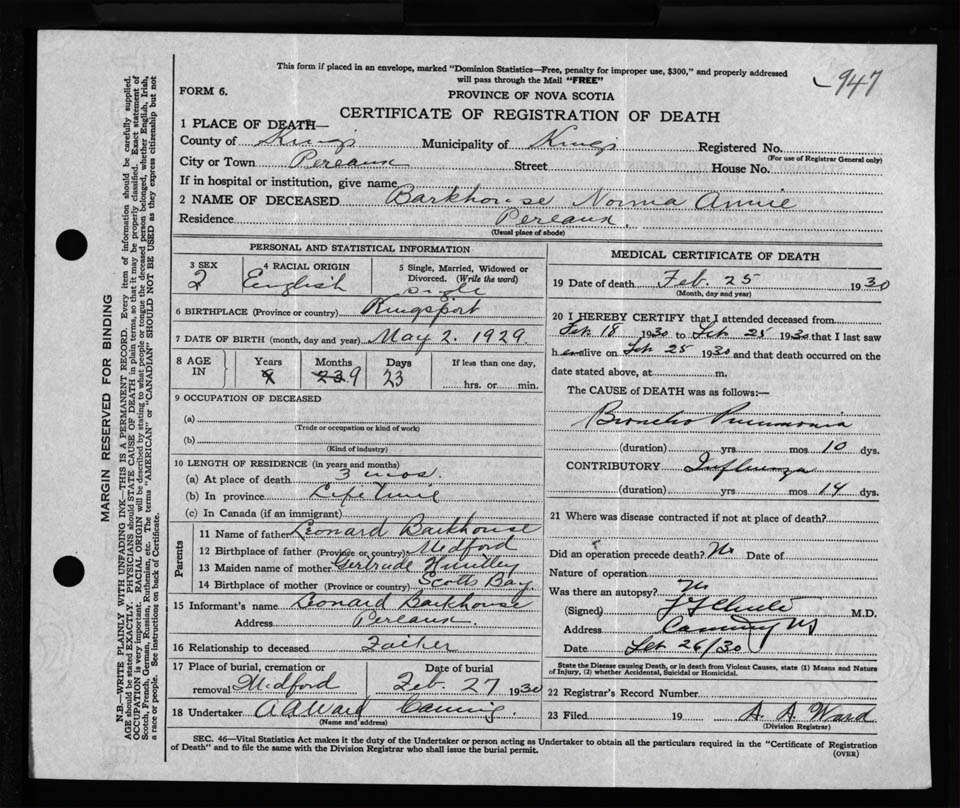 This form if placed in an envelope, marked "Dominion Statistics—Free, penalty for improper use, $300," and properly addressed
will pass through the Mail "FREE"
947
FORM 6.
PROVINCE OF NOVA SCOTIA
CERTIFICATE OF REGISTRATION OF DEATH
1 PLACE OF DEATH—
County of Kings Municipality of Kings Registered No.
(For use of Registrar General only)
City or Town Pereaux Street House No.
If in hospital or institution, give name
2 NAME OF DECEASED Barkhouse Norma Annie
Residence Pereaux
(Usual place of abode)
PERSONAL AND STATISTICAL INFORMATION
3 SEX 4 RACIAL ORIGIN 5 Single, Married, Widowed or Divorced. (Write the word)
2 English sigle
6 BIRTHPLACE (Province or country) Kingsport
7 DATE OF BIRTH (month, day and year) May 2. 1929.
8 AGE IN Years Months Days If less than one day,
9 23 9 23 hrs. or min.
9 OCCUPATION OF DECEASED
(a)
(Trade or occupation or kind of work)
(b)
(Kind of industry)
10 LENGTH OF RESIDENCE (in years and months)
(a) At place of death 3 mos.
(b) In province Life Time
(c) In Canada (if an immigrant)
Parents
11 Name of father Leonard Barkhouse
12 Birthplace of father (Province or country) Medford
13 Maiden name of mother Gertrude Huntley
14 Birthplace of mother (Province or country) Scotts Bay
15 Informant's name Leonard Barkhouse
Address Pereaux.
16 Relationship to deceased Father
17 Place of burial, cremation or removal Medford Date of burial Feb. 27 1930
18 Undertaker A A Ward Canning.
(Name and address)
MEDICAL CERTIFICATE OF DEATH
19 Date of death Feb. 25 1930
(Month, day and year)
20 I HEREBY CERTIFY that I attended deceased from
Feb 18 1930 to Feb 25 1930 that I last saw
h er alive on Feb 25 1930 and that death occurred on the
date stated above, at m.
The CAUSE OF DEATH was as follows:—
Broncho Pneumonia
(duration) yrs. mos. 10 dys.
CONTRIBUTORY Influenza
(duration) yrs. mos. 14 dys.
21 Where was disease contracted if not at place of death?
Did an operation precede death? No Date of
Nature of operation
Was there an autopsy? No
(Signed) M.D.
Address Canning NS
Date Feb 26/30
State the Disease causing Death, or in death from Violent Causes, state (1) Means and Nature
of Injury, (2) whether Accidental, Suicidal or Homicidal.
22 Registrar's Record Number
23 Filed 19 A. A. Ward
(Division Registrar)
SEC. 46—Vital Statistics Act makes it the duty of the Undertaker or person acting as Undertaker to obtain all the particulars required in the "Certificate of Registration
of Death" and to file the same with the Division Registrar who shall issue the burial permit.
(OVER)
MARGIN RESERVED FOR BINDING
N.B.—WRITE PLAINLY WITH UNFADING INK—THIS IS A PERMANENT RECORD. Every item of information should be carefully supplied.
AGE should be stated EXACTLY. PHYSICIANS should STATE CAUSE OF DEATH in plain terms, so that it may be properly classified. Exact statement of
OCCUPATION is very important. RACIAL ORIGIN will be described by stating to what people or tongue the deceased person belonged, whether English, Irish,
Scotch, French, German, Russian, Ruthenian, etc. The terms "AMERICAN" or "CANADIAN" SHOULD NOT BE USED as they express citizenship but not
a race or people. See instructions on back of Certificate.